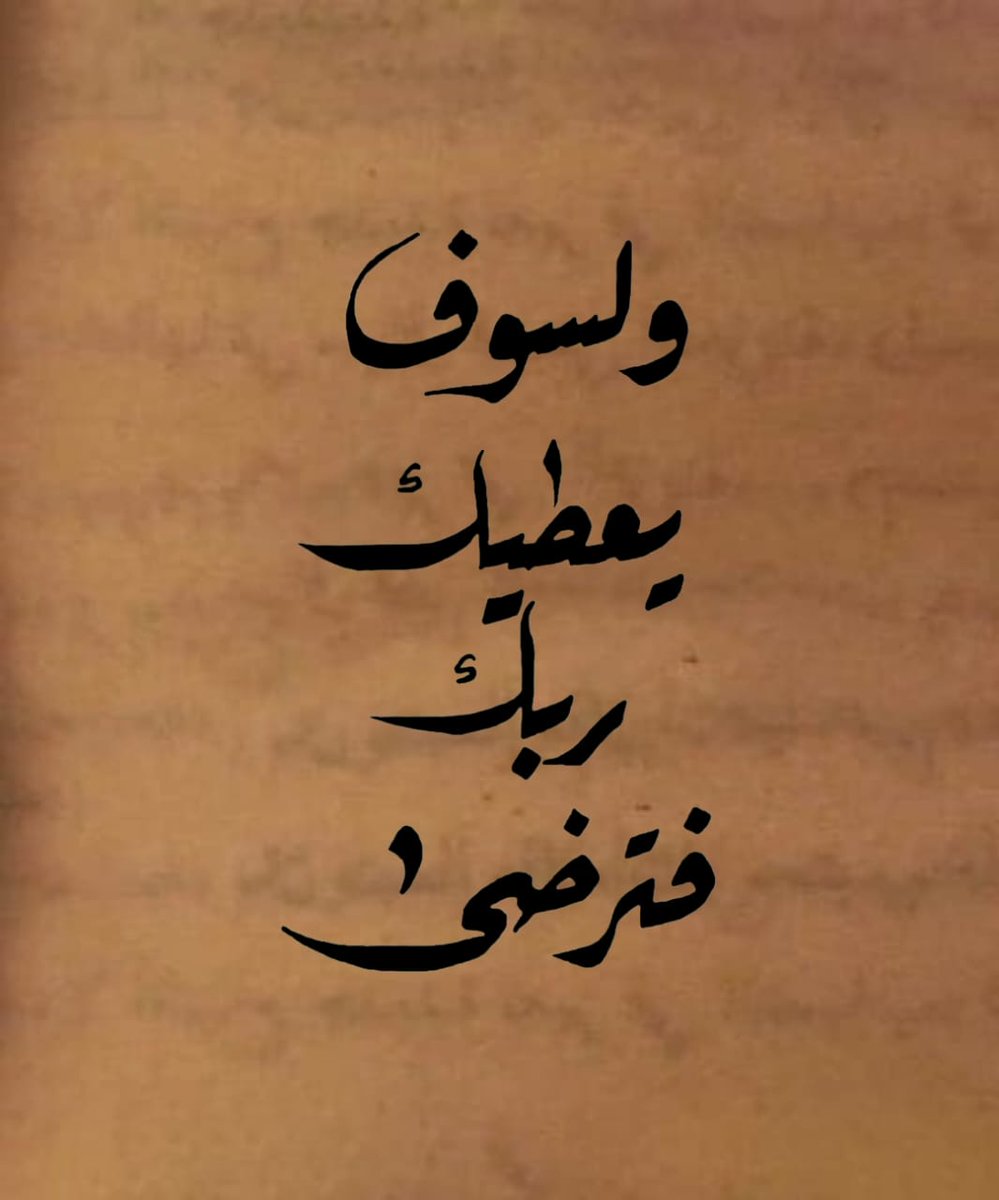 ولسوف
يعطيك
ربك
فترضىٰ